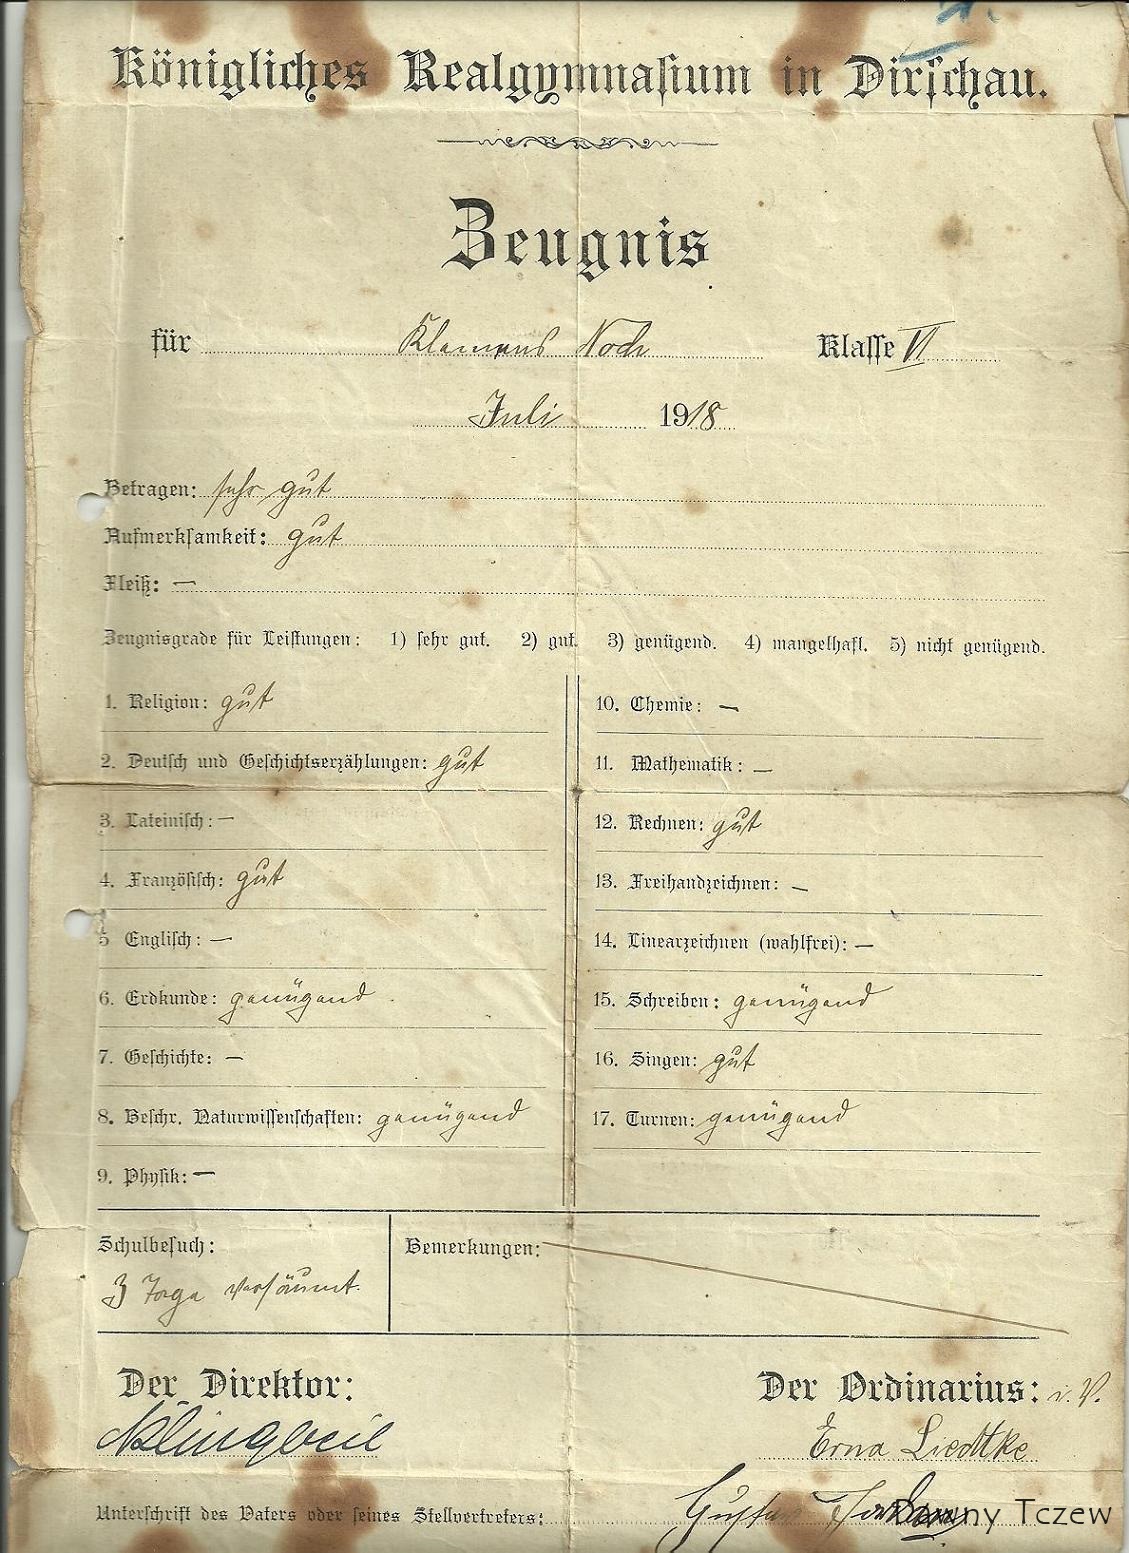 Königliches Realgymnasium in Dirschau.
Zeugnis
für Klemens Noch Klasse VI
Juli 1918
Betragen: sehr gut
Aufmerksamkeit: gut
Fleiß: —
Zeugnisgrade für Leistungen: 1) sehr gut. 2) gut. 3) genügend. 4) mangelhaft. 5) nicht genügend.
1. Religion: gut
2. Deutsch und Geschichtserzählungen: gut
3. Lateinisch: —
4. Französisch: gut
5 Englisch: —
6. Erdkunde: genügend
7. Geschichte: —
8. Beschr. Naturwissenschaften: genügend
9. Physik: —
10. Chemie: —
11. Mathematik: —
12. Rechnen: gut
13. Freihandzeichnen: —
14. Linearzeichnen (wahlfrei): —
15. Schreiben: genügend
16. Singen: gut
17. Turnen: genügend
Schulbesuch:
3 Tage versäumt.
Bemerkungen:
Der Direktor:
Klingbeil
Der Ordinarius: i. V.
Erna Liedtke
Unterschrift des Vaters oder seines Stellvertreters: Gustav
Dawny Tczew